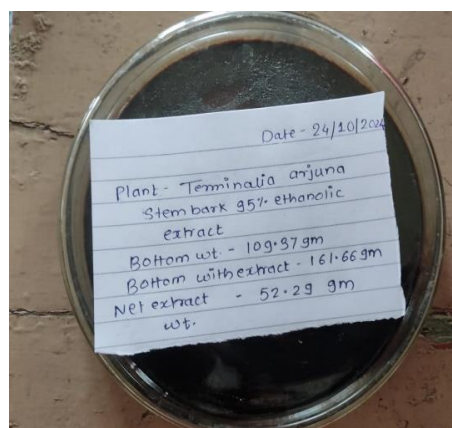 Date - 24/10/2024
Plant - Terminalia arjuna
Stem bark 95% ethanolic
extract
Bottom wt. - 109.37 gm
Bottom with extract - 161.66 gm
Net extract - 52.29 gm
wt.